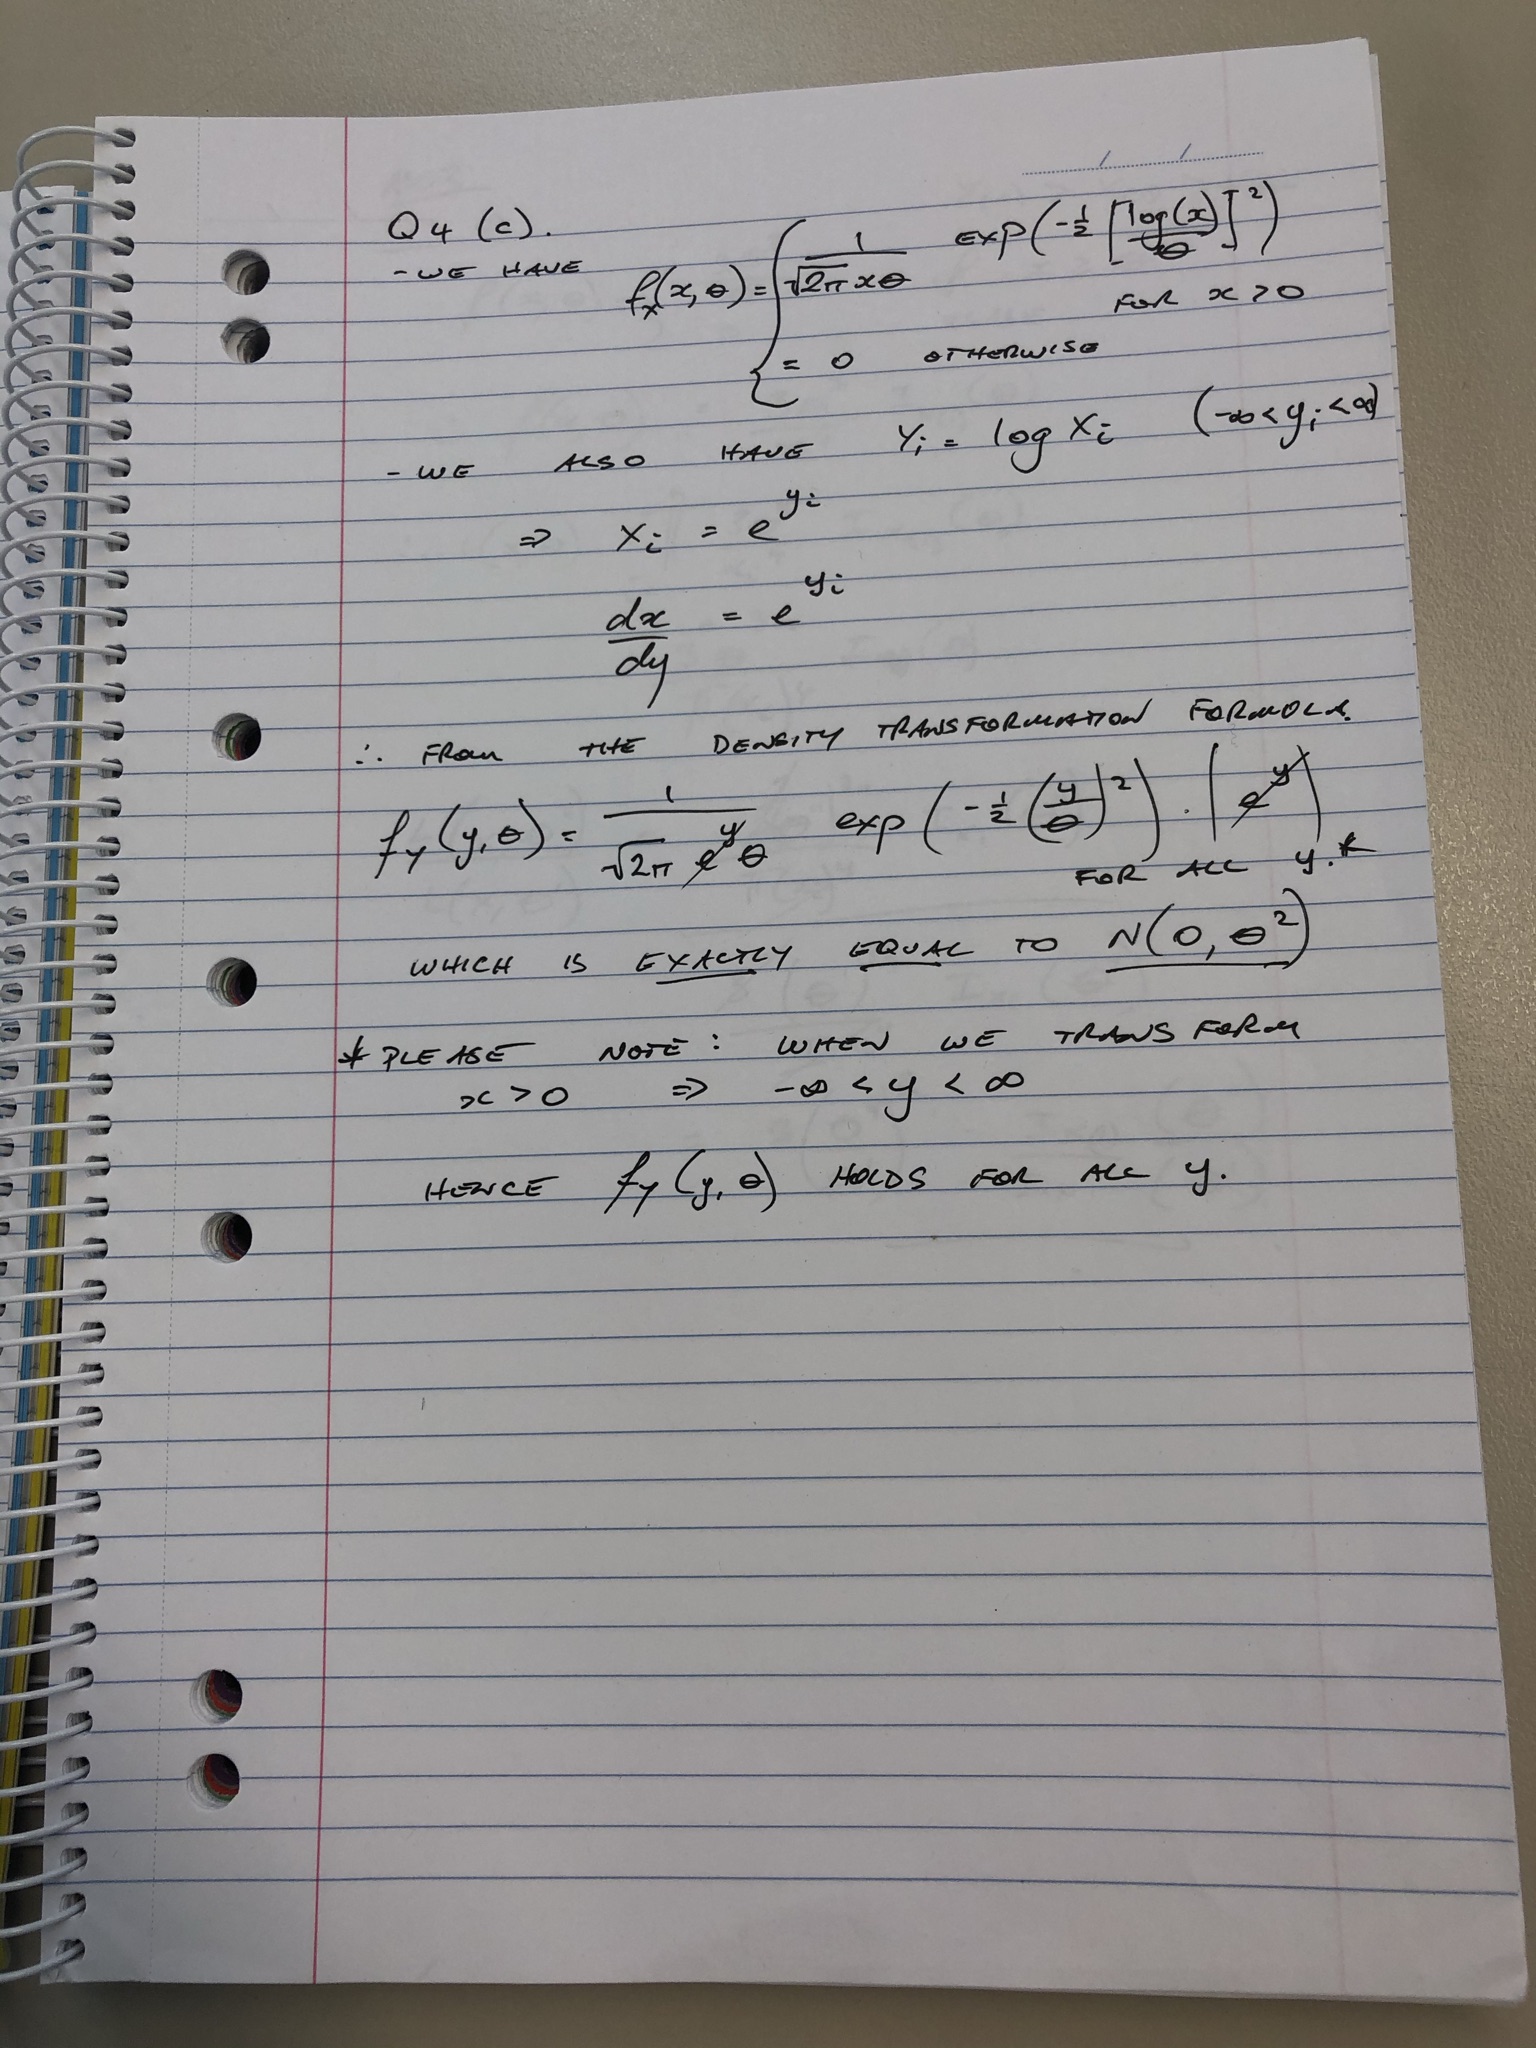 Q4 (c).
- WE HAVE f_X(x, θ) = { 1/(√2π xθ) exp(-½ [log(x)/θ]²) FOR x > 0
= 0 OTHERWISE
- WE ALSO HAVE Y_i = log X_i (-∞ < y_i < ∞)
⇒ X_i = e^{y_i}
dx/dy = e^{y_i}
∴ FROM THE DENSITY TRANSFORMATION FORMULA.
f_Y(y, θ) = 1/(√2π e^y θ) exp(-½ (y/θ)²) . |e^y|
FOR ALL y.*
WHICH IS EXACTLY EQUAL TO N(0, θ²)
* PLEASE NOTE: WHEN WE TRANSFORM
x > 0 ⇒ -∞ < y < ∞
HENCE f_Y(y, θ) HOLDS FOR ALL y.